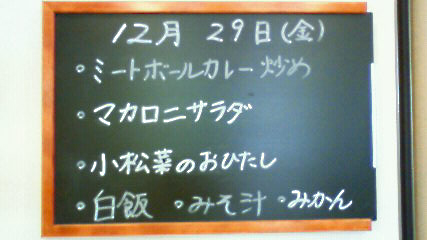 12月 29日(金)
。ミートボールカレー炒め
。マカロニサラダ
。小松菜のおひたし
。白飯 。みそ汁 。みかん